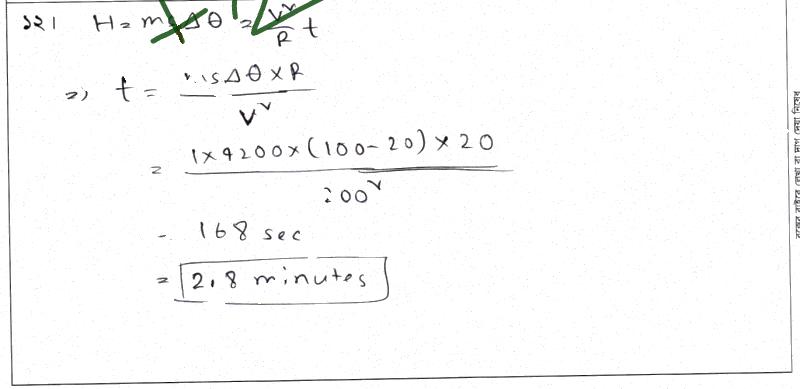 ১২। H = msΔθ = V²/R t
=> t = msΔθ×R / V²
= 1×4200×(100-20)×20 / 200²
= 168 sec
= 2.8 minutes